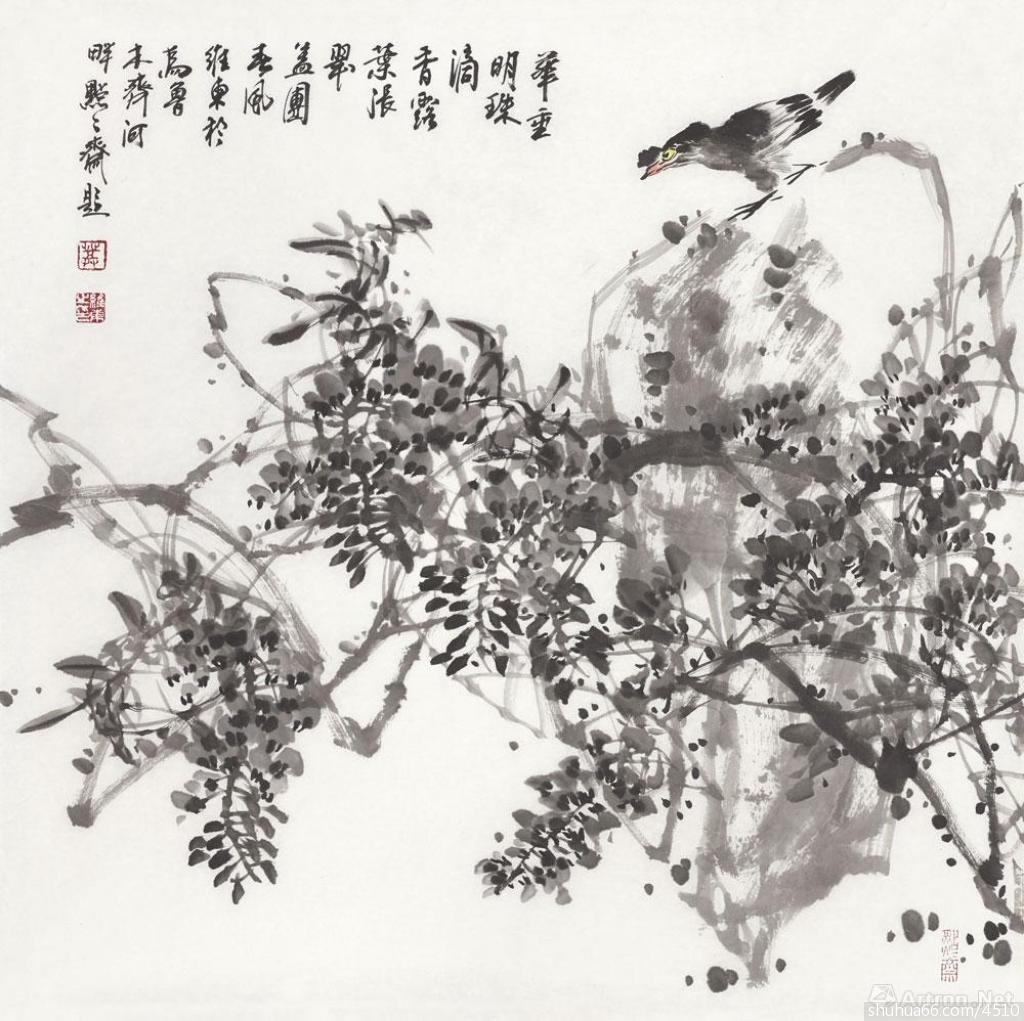 華垂
明珠
滴
香露
葉張
翠
蓋團
春風
維東於
烏魯
木齊河
畔點々齋題
Artron.Net
shuhua66.com/4510